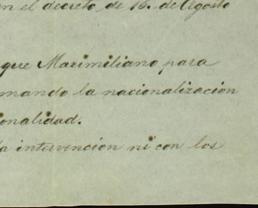 en el decreto de 16. de Agosto
que Maximiliano para
mando la nacionalizacion
onalidad.
la intervencion ni con los